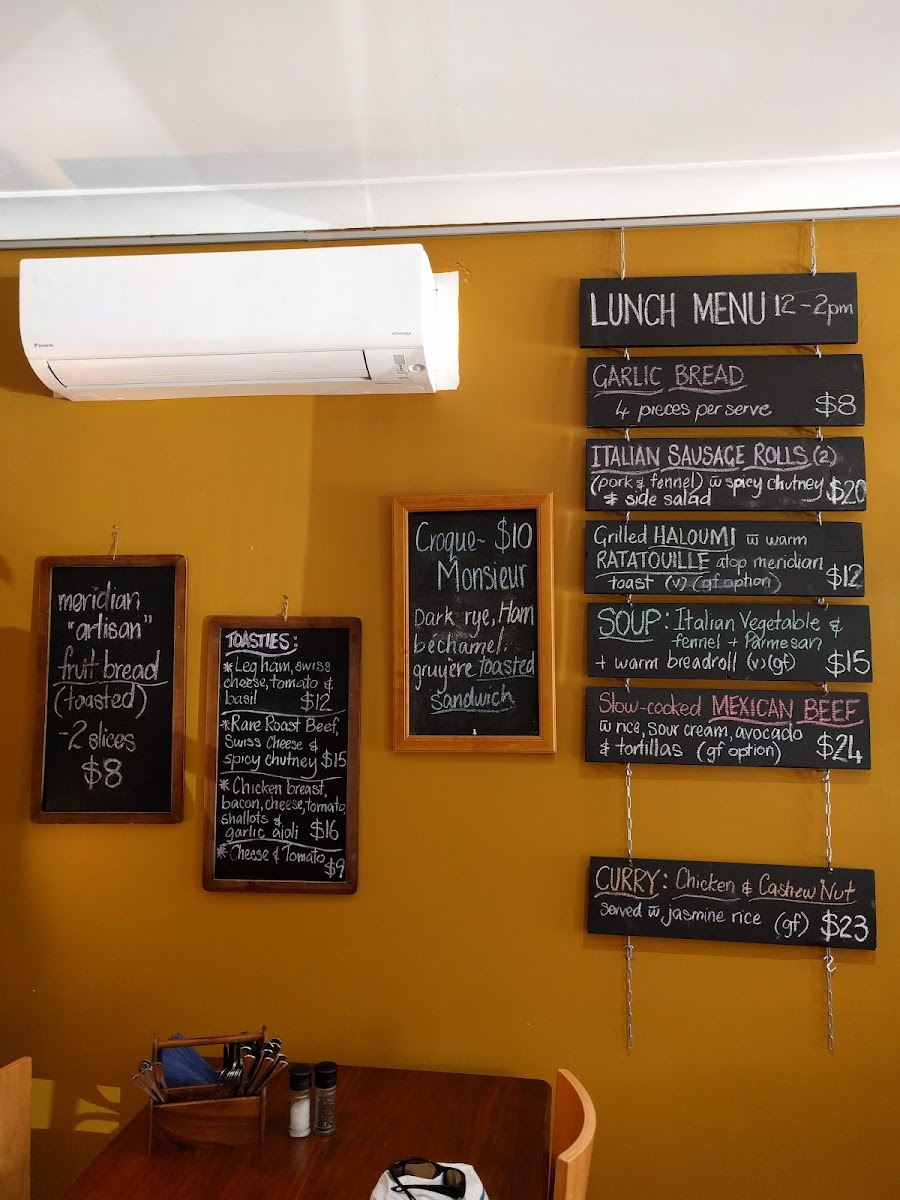 DAIKIN
meridian
"artisan"
fruit bread
(toasted)
-2 slices
$8
TOASTIES:
*Leg ham, swiss
cheese, tomato &
basil $12
*Rare Roast Beef,
Swiss Cheese &
spicy chutney $15
* Chicken breast,
bacon, cheese, tomato
shallots &
garlic aioli $16
*Cheese & Tomato
$9
Croque- $10
Monsieur
Dark rye, Ham
béchamel,
gruyère toasted
sandwich
LUNCH MENU 12-2pm
GARLIC BREAD
4 pieces per serve $8
ITALIAN SAUSAGE ROLLS (2)
(pork & fennel) w̄ spicy chutney
& side salad $20
Grilled HALOUMI w̄ warm
RATATOUILLE atop meridian
toast (v) (gf option) $12
SOUP: Italian Vegetable &
fennel + Parmesan
+ warm breadroll (v)(gf) $15
Slow-cooked MEXICAN BEEF
w̄ rice, sour cream, avocado
& tortillas (gf option) $24
CURRY: Chicken & Cashew Nut
served w̄ jasmine rice (gf) $23